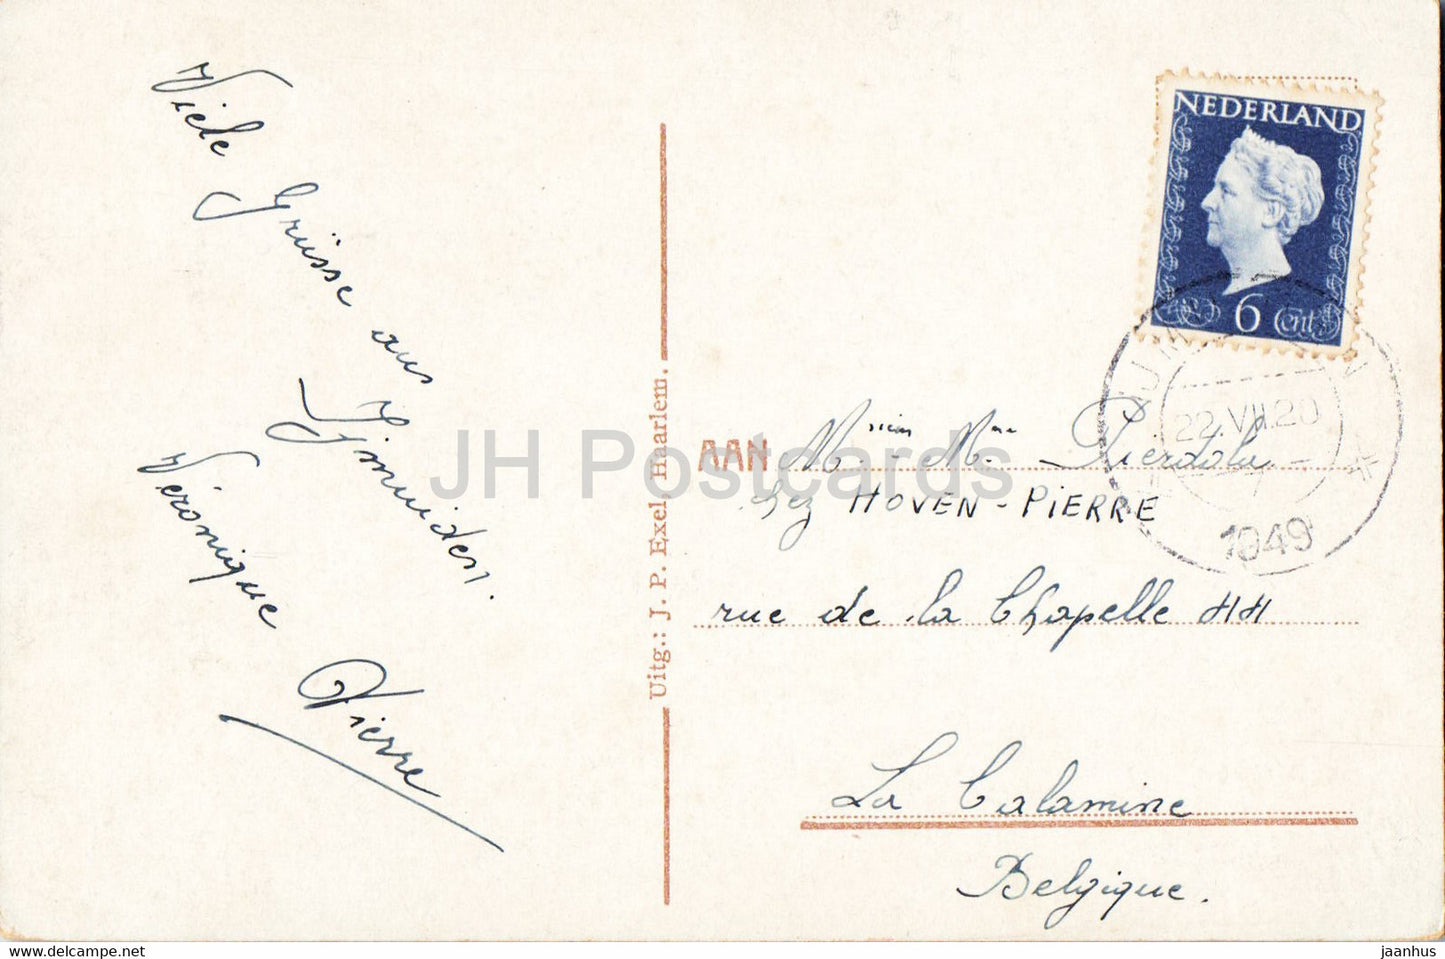 Viele
Grüsse
aus
Ijmuiden.
Véronique
Pierre
Uitg.: J. P. Exel, Haarlem.
NEDERLAND
6 Cent
22.VII.20
1949
AAN Mr - Mme Pierdola
chez HOVEN-PIERRE
rue de la Chapelle
La Calamine
Belgique.
JH Postcards
https://www.delcampe.net
jaanhus